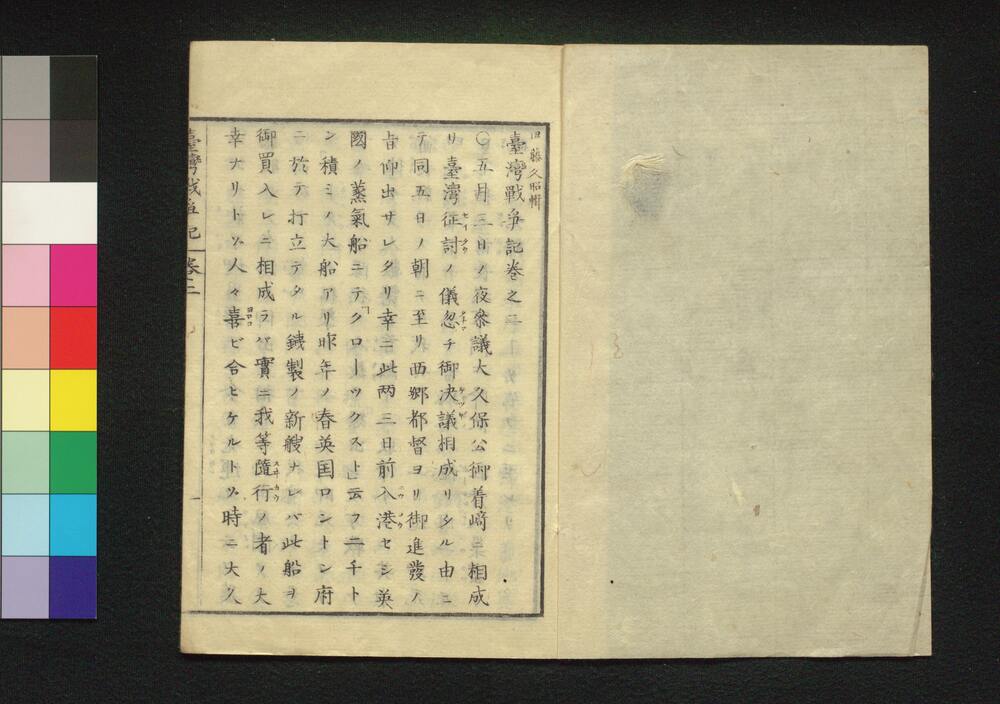 臺灣戰争記巻之二
田藤久昭輯
〇五月三日ノ夜參議大久保公御着﨑ニ相成
リ臺灣征討ノ儀忽チ御决議相成リタル由ニ
テ同五日ノ朝ニ至リ西郷都督ヨリ御進發ノ
旨仰出サレタリ幸ニ此两三日前入港セシ英
國ノ蒸氣船ニテ「クローツクスト云フ二千ト
ン積ミノ大船アリ昨年ノ春英国ロントン府
ニ於テ打立テタル鐵製ノ新艘ナレバ此船ヲ
御買入レニ相成ラバ實ニ我等隨行ノ者ノ大
幸ナリトソ人々喜ビ合ヒケルトソ時ニ大久
臺灣戰争記 巻二 一